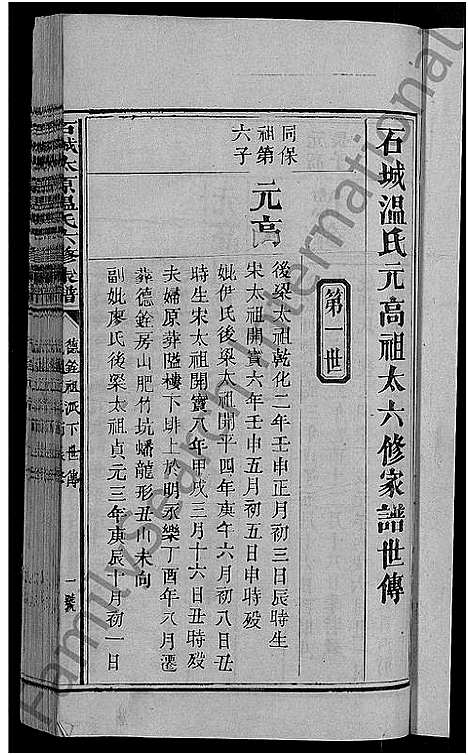 石城溫氏元高祖太六修家譜世傳
第一世
同保
祖第
六子
元高
後梁太祖乾化二年壬申正月初三日辰時生
宋太祖開寶六年壬申五月初五日申時殁
妣伊氏後梁太祖開平四年庚午六月初八日丑
時生宋太祖開寶八年甲戌三月十六日丑時殁
夫婦原葬隘樓下排上於明永樂丁酉年八月遷
葬德銓房山肥竹坑蟠龍形丑山未向
副妣廖氏後梁太祖貞元三年庚辰十月初一日
石城太原溫氏六修家譜
德銓祖派下世傳
一號
FamilySearch International